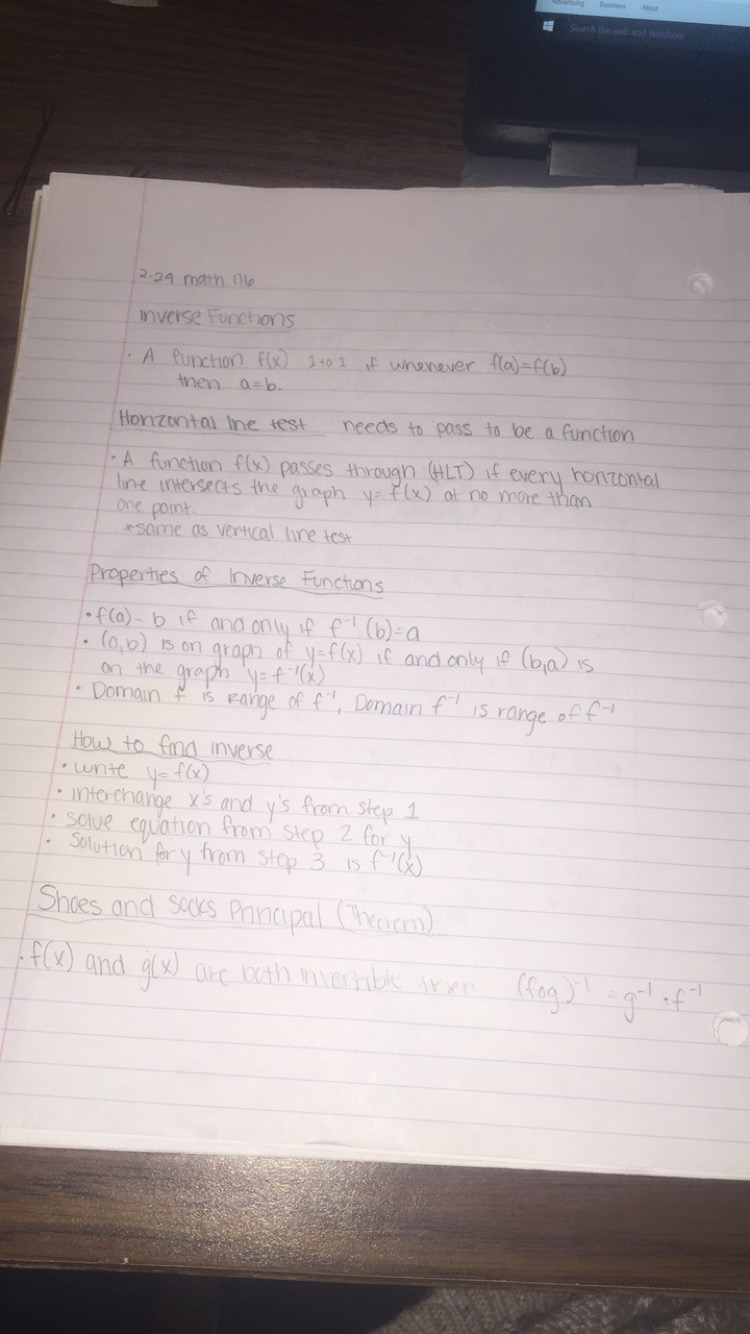 Advertising Business About
Search the web and Windows
2-29 math 116
Inverse Functions
· A function f(x) 1 to 1 if whenever f(a)=f(b)
then a=b.
Horizontal line test needs to pass to be a function
· A function f(x) passes through (HLT) if every horizontal
line intersects the graph y=f(x) at no more than
one point.
*same as vertical line test
Properties of Inverse Functions
· f(a)=b if and only if f⁻¹(b)=a
· (a,b) is on graph of y=f(x) if and only if (b,a) is
on the graph y=f⁻¹(x)
· Domain f is Range of f⁻¹, Domain f⁻¹ is range of f⁻¹
How to find inverse
· write y=f(x)
· interchange x's and y's from step 1
· solve equation from step 2 for y
· Solution for y from step 3 is f⁻¹(x)
Shoes and Socks Principal (Theorem)
· f(x) and g(x) are both invertible then (fog)⁻¹ = g⁻¹ · f⁻¹